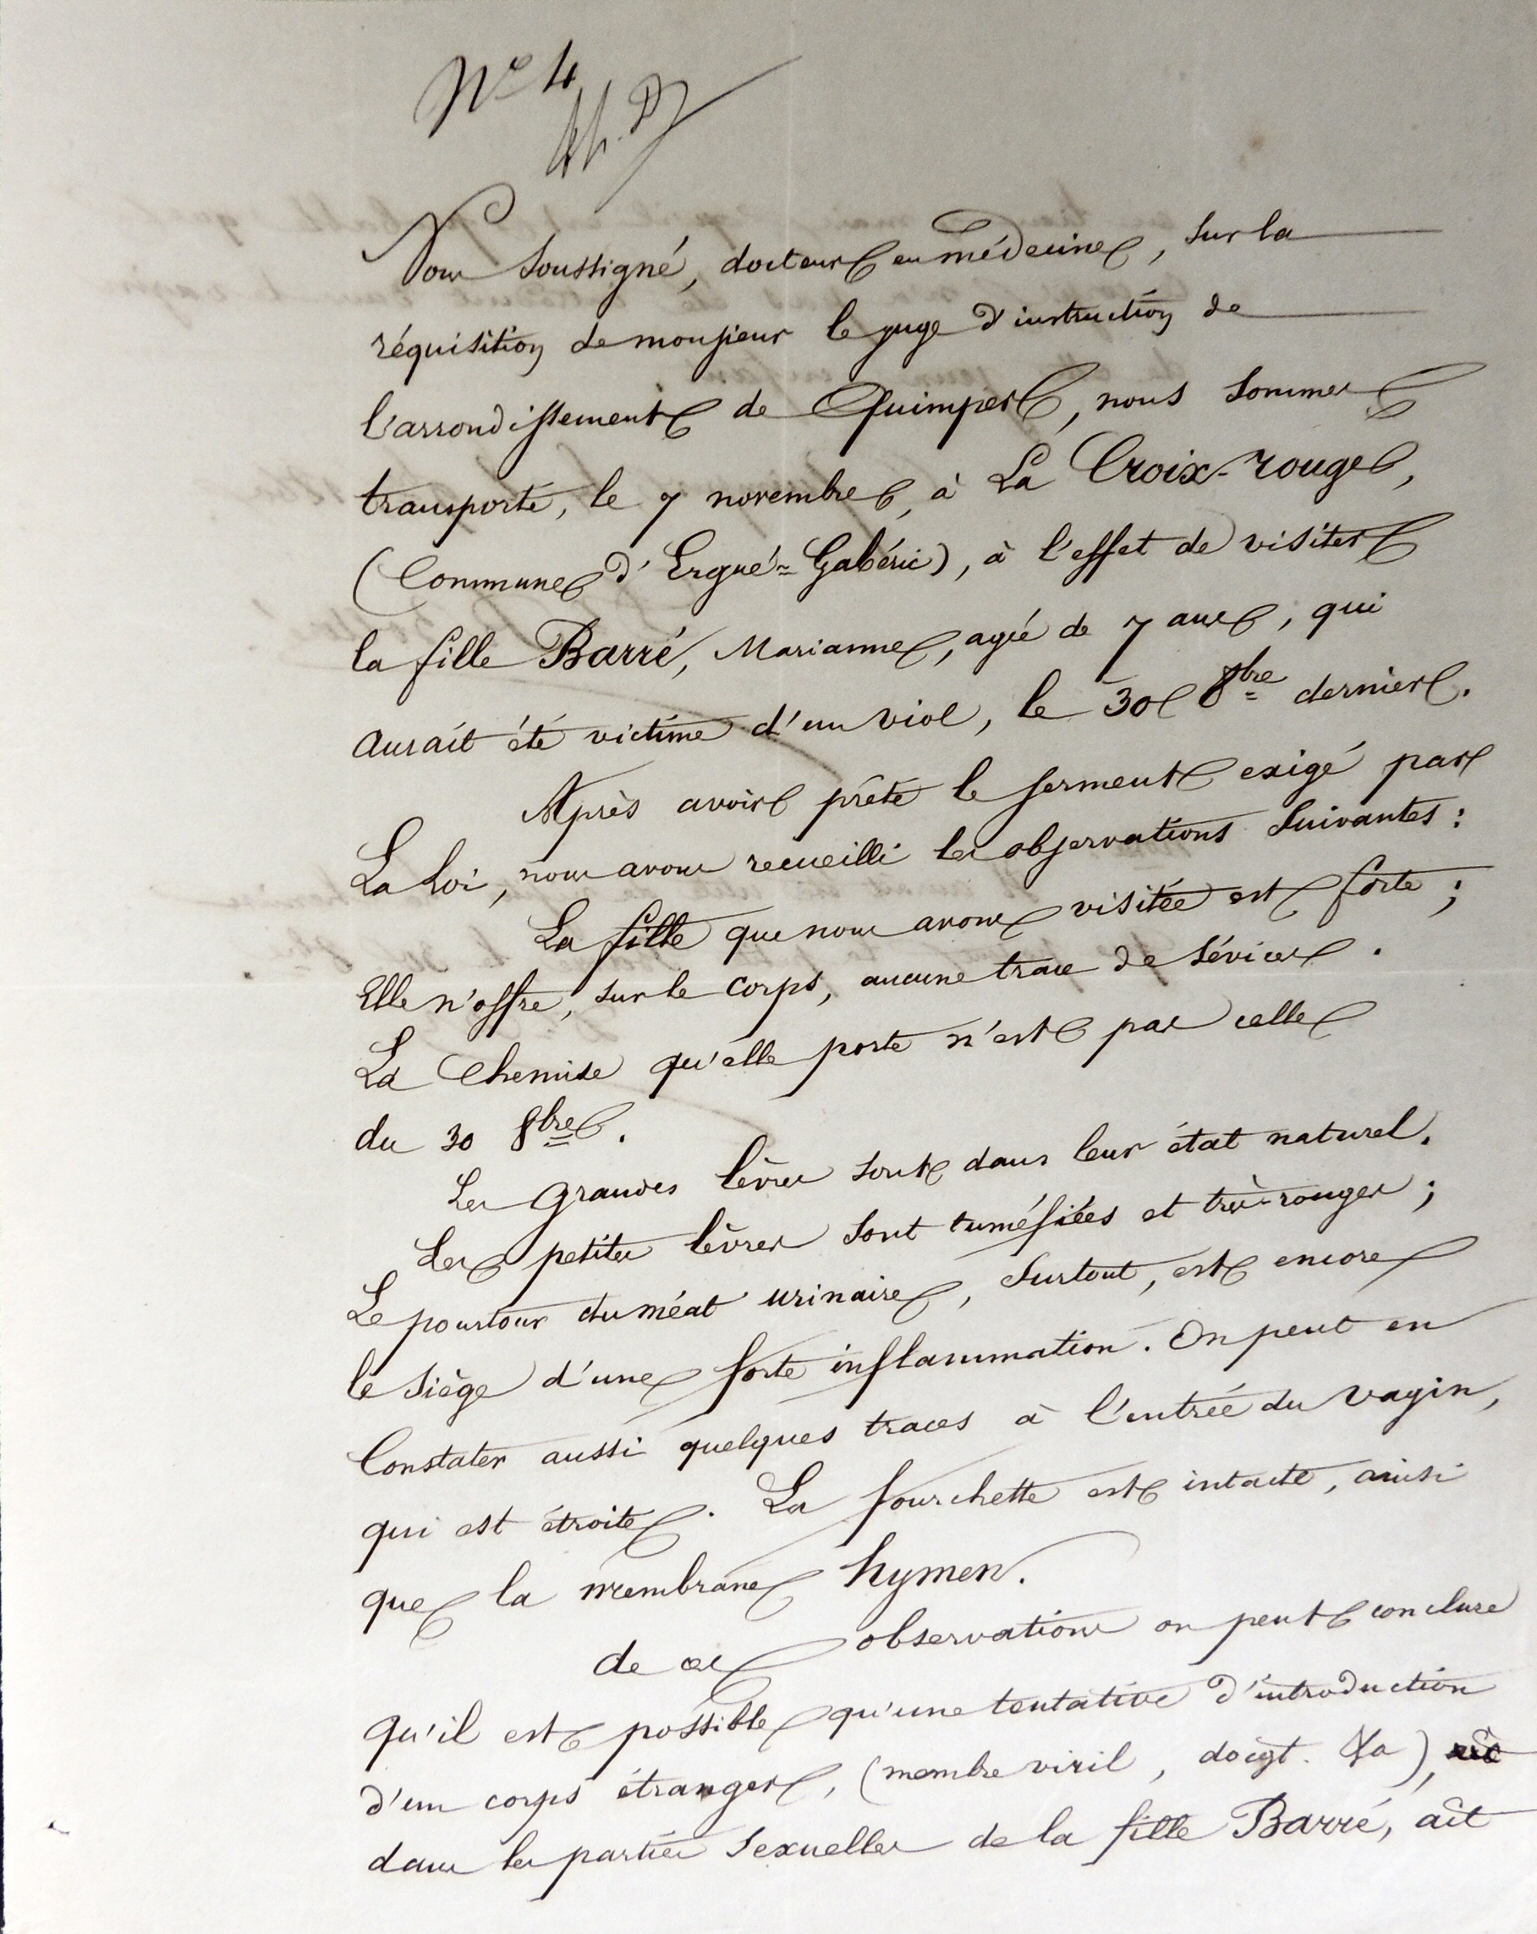 N° 4
Nous soussigné, docteur en médecine, sur la
réquisition de monsieur le juge d'instruction de
l'arrondissement de Quimper, nous sommes
transporté, le 7 novembre, à La Croix-rouge,
(Commune d'Ergué-Gabéric), à l'effet de visiter
la fille Barré, Marianne, agée de 7 ans, qui
aurait été victime d'un viol, le 30 8bre dernier.
Après avoir prêté le serment exigé par
La Loi, nous avons recueilli les observations suivantes :
La fille que nous avons visitée est forte ;
Elle n'offre, sur le corps, aucune trace de sévices.
La Chemise qu'elle porte n'est pas celle
du 30 8bre.
Les grandes lèvres sont dans leur état naturel.
Les petites lèvres sont tuméfiées et très-rouges ;
Le pourtour du méat urinaire, surtout, est encore
le siège d'une forte inflammation. On peut en
Constater aussi quelques traces à l'entrée du vagin,
qui est étroite. La fourchette est intacte, ainsi
que la membrane hymen.
de ces observations on peut conclure
qu'il est possible qu'une tentative d'introduction
d'un corps étranger, (membre viril, doigt. &a),
dans les parties sexuelles de la fille Barré, ait